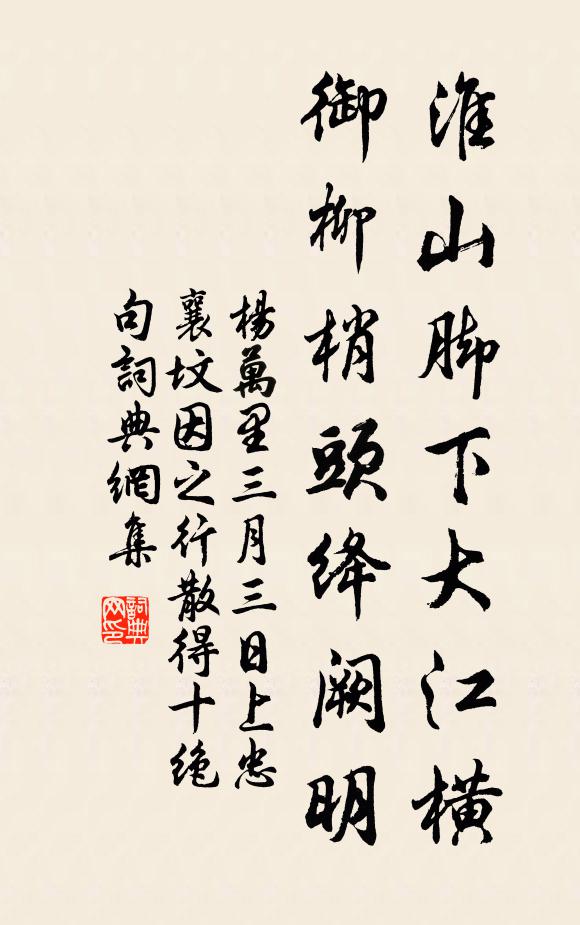 淮山脚下大江橫
御柳梢頭絳阙明
楊萬里三月三日上忠
襄坟因之行散得十绝
句詞典網集
詞典网印